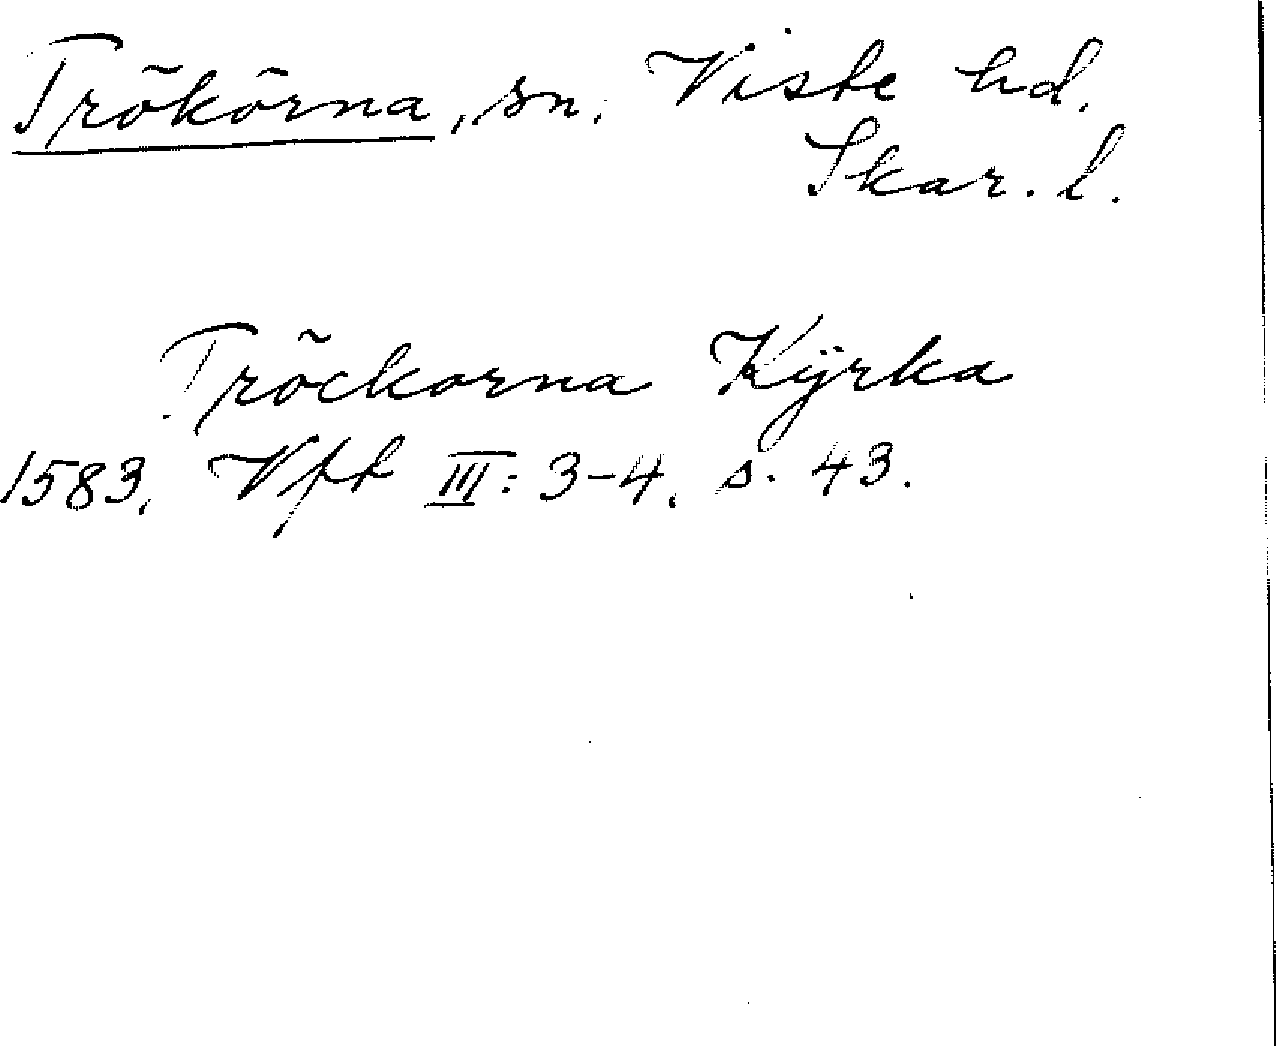 Trökörna, sn. Viste hd.
Skar. l.
Tröckorna Kÿrka
1583. Vft III: 3-4. s. 43.